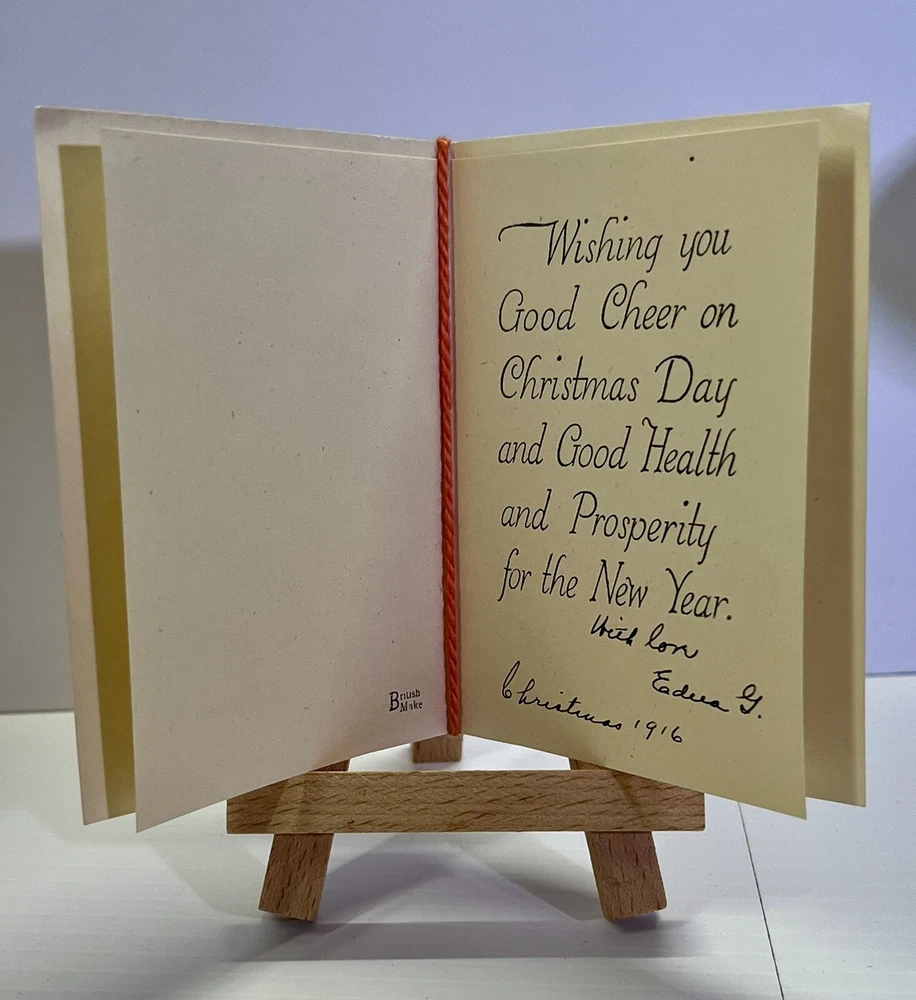 British
Make
Wishing you
Good Cheer on
Christmas Day
and Good Health
and Prosperity
for the New Year.
With love
Edna G.
Christmas 1916